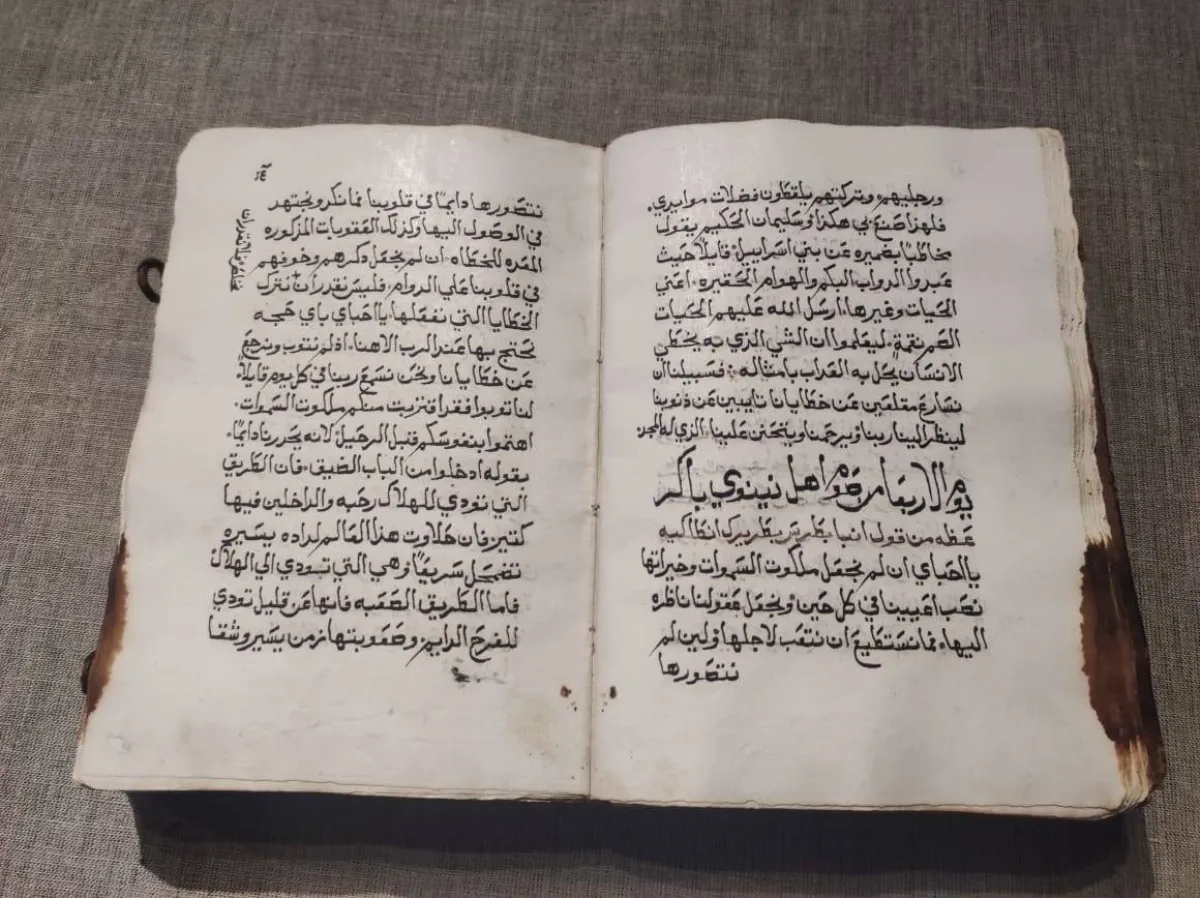 ورجليهم، وتركتهم يلقطون فضلات موايدي.
فلهذا صنع بي هكذا وسليمان الحكيم يقول
مخاطبًا بضميره عن بني اسراييل قايلًا حيث
عبدوا الدواب البكم والهوام الحقيره. اعني
الحيات وغيرها. ارسل الله عليهم الحيات
الصم نقمة. ليعلموا ان الشي الذي به يخطي
الانسان يحل به العداب بامثاله: فسبيلنا ان
نسارع مقلعين عن خطايانا تايبين عن ذنوبنا
لينظر الينا ربنا ويرحمنا ويتحنن علينا. الذي له المجد:
يوم الاربعا من صوم اهل نينوي باكر
عظه من قول انبا بطرس بطريرك انطاكيه
يااحباي ان لم نجعل ملكوت السموات وخيراتها
نصب اعيننا في كل حين ونجعل عقولنا ناظره
اليها، فما نستطيع ان نتعب لاجلها ولين لم
نتصورها
نتصورها دايمًا في قلوبنا فما نكر ونجتهد
في الوصول اليها وكذلك العقوبات المذكوره
المعده للخطاه. ان لم نجعل ذكرهم وخوفهم
في قلوبنا علي الدوام. فليس نقدر ان نترك
الخطايا التي نفعلها. يا احباي باي حجه
نحتج بها عند الرب الاهنا. اذ لم نتوب ونرجع
عن خطايانا ونحن نسمع ربنا في كل يوم قايلًا.
لنا توبوا فقد اقتربت منكم ملكوت السموات.
اهتموا بنفوسكم قبل الرحيل لانه يحدرنا دايمًا.
بقوله ادخلوا من الباب الضيق. فان الطريق
التي تودي للهلاك رحبه والداخلين فيها
كتير، فان حلاوت هذا العالم لداده يسيره
تضمحل سريعًا وهي التي تودي الي الهلاك
فاما الطريق الصعبه فانها عن قليل تودي
للفرح الدايم. وصعوبتها زمن يسير وشقا